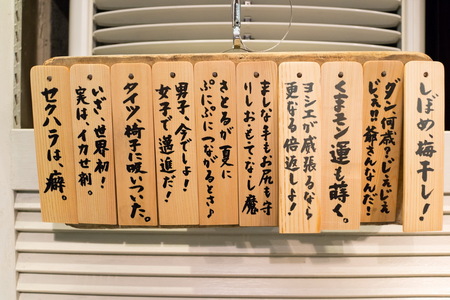 しぼめ、梅干し!
ダン何歳?じぇじぇ
じぇ!!爺さんなんだ!
くまモン運も蒔く。
ヨシエが威張るなら
更なる倍返しよ!
ましな手もお尻も守
りしおもてなし魔
さとるが夏に
ぷにぷにつながるとさ♪
男子、今でしょ!
女子で邁進だ!
タイツ、椅子に吸いついた。
いざ、世界初!
実は、イカせ剤。
セクハラは、癖。